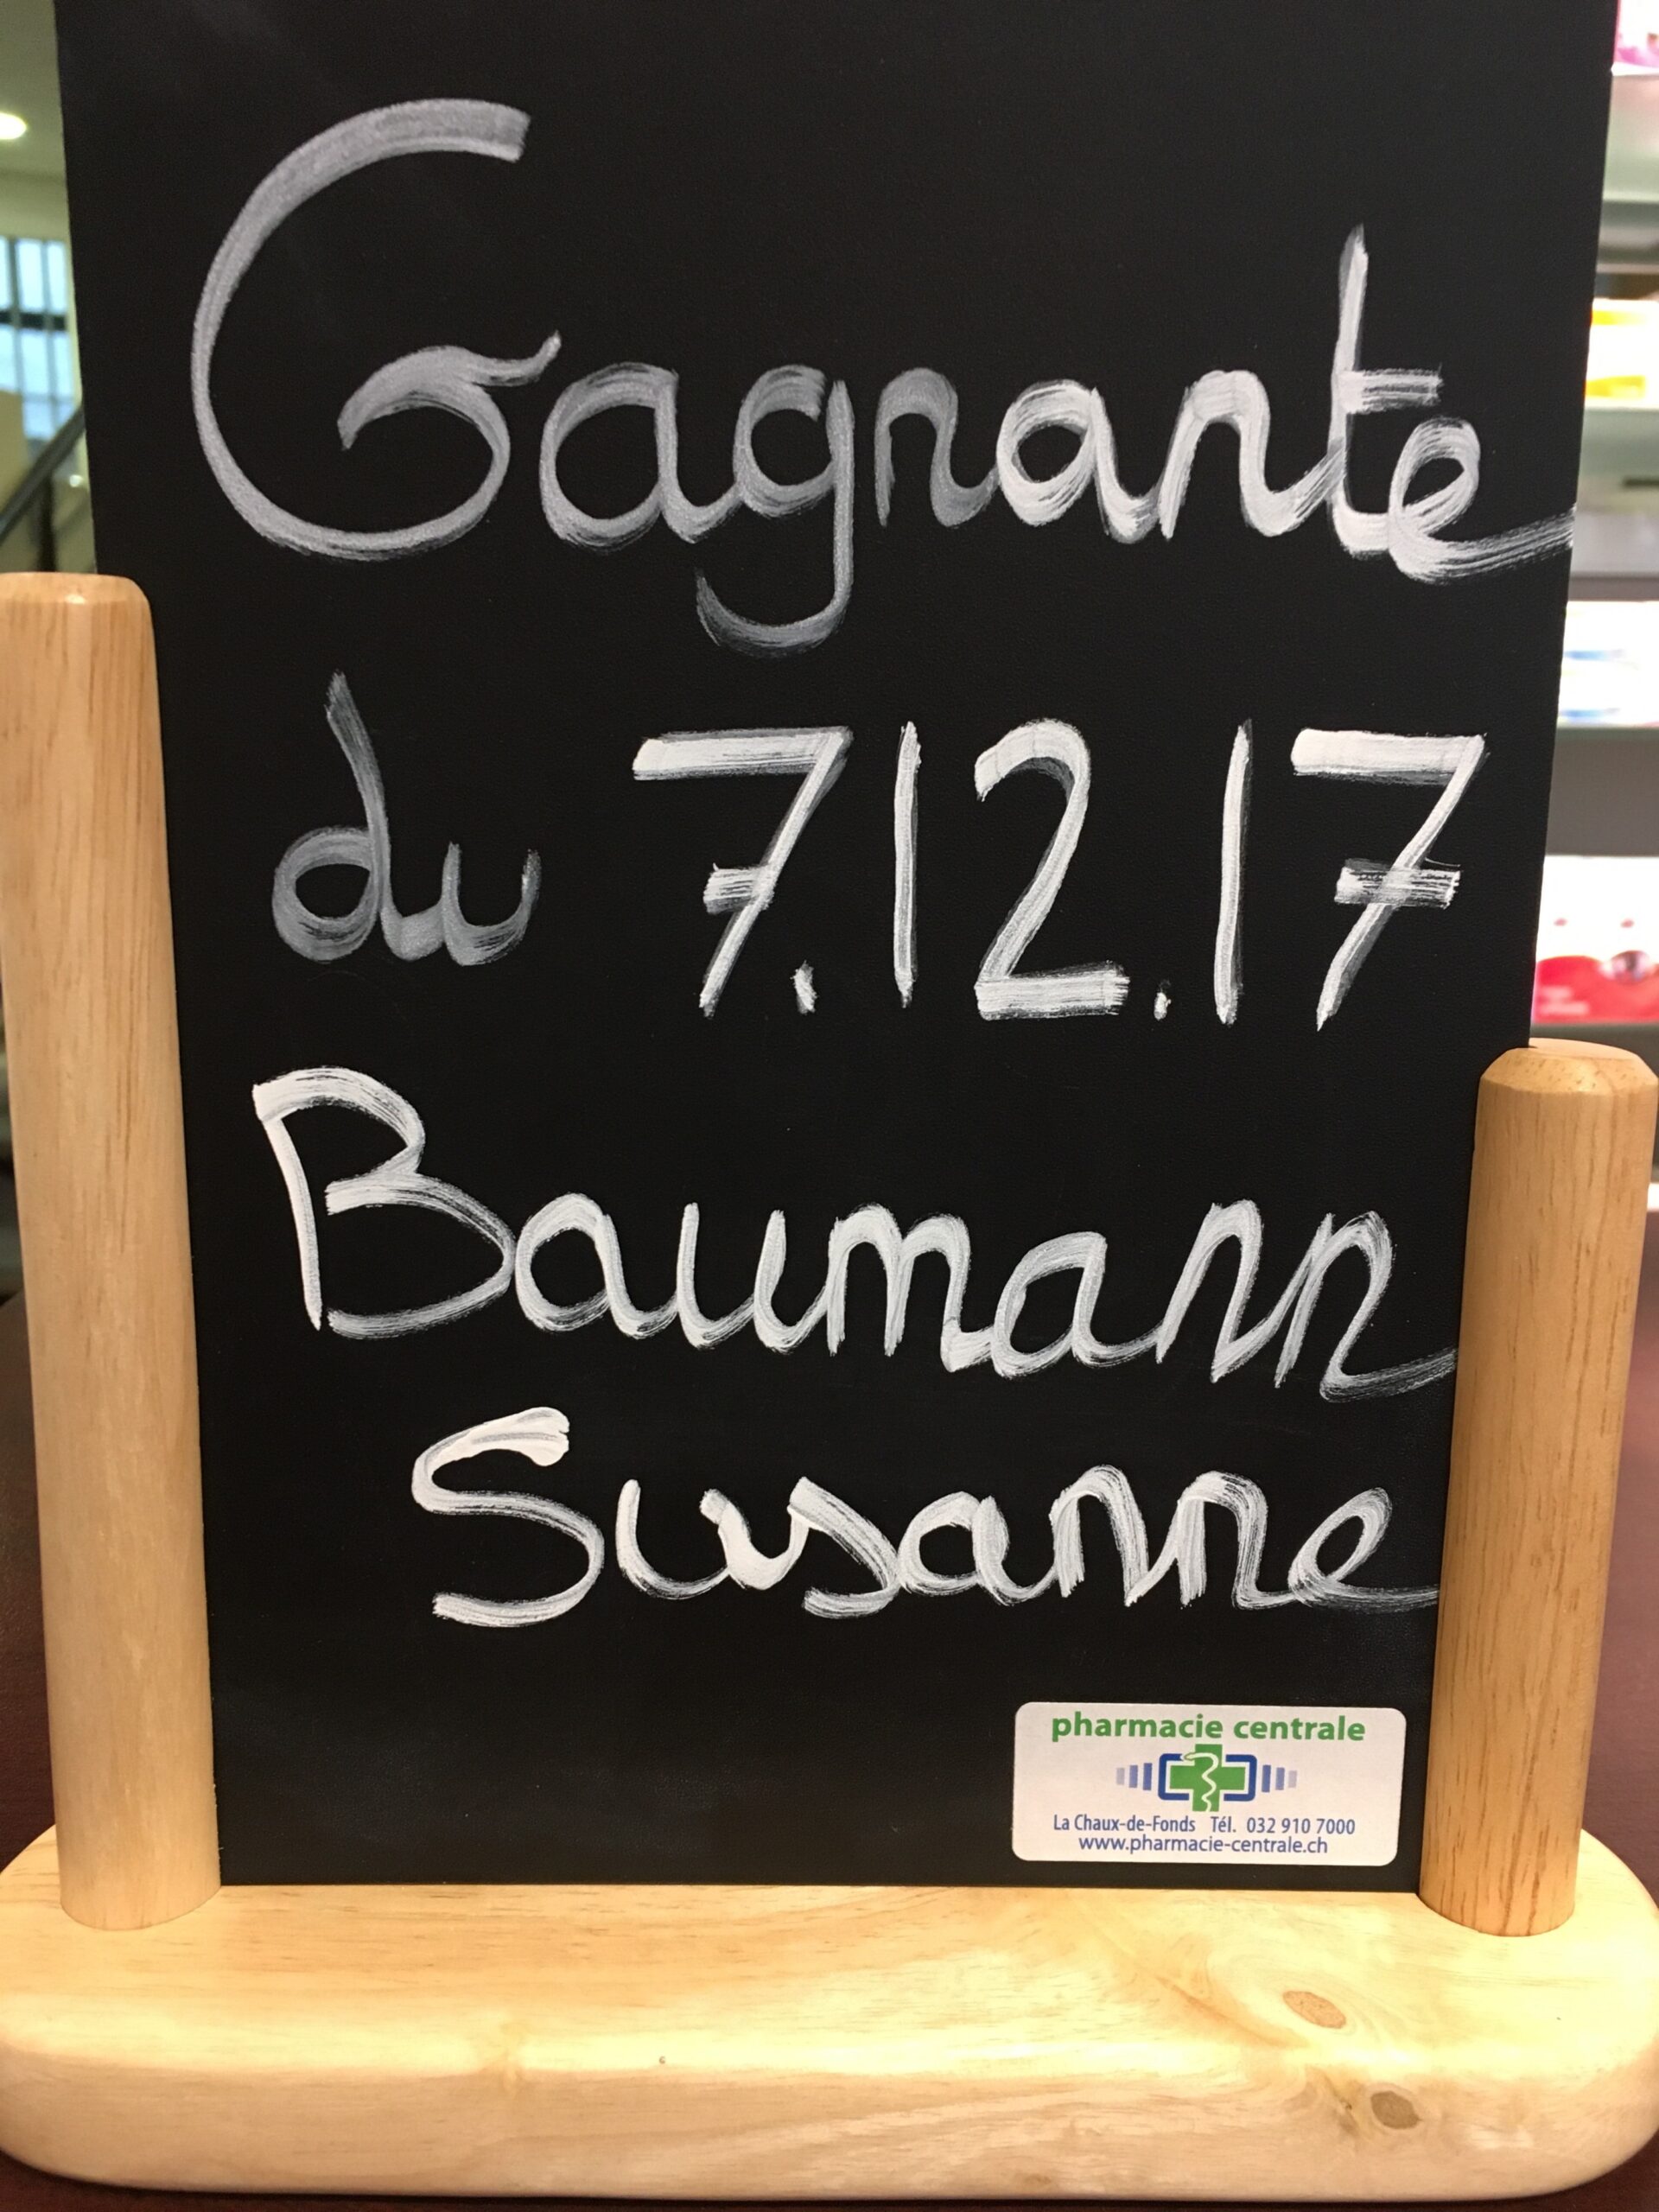 Gagnante
du 7.12.17
Baumann
Susanne
pharmacie centrale
La Chaux-de-Fonds Tél. 032 910 7000
www.pharmacie-centrale.ch